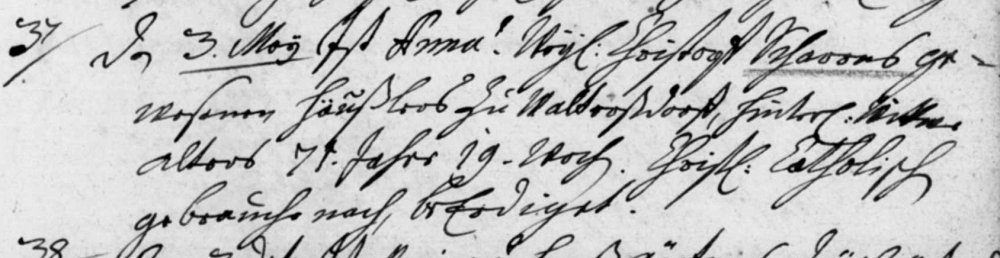 37 Den 3. Maÿ Ist Anna, Weÿl: Christoph Scharons ge-
wesenen Häußlers zu Waltersdorff, hinterl: Wittwe
alters 71. Jahr 19. Woch. Christl: Catholisch
gebrauche nach, beErdiget.
38